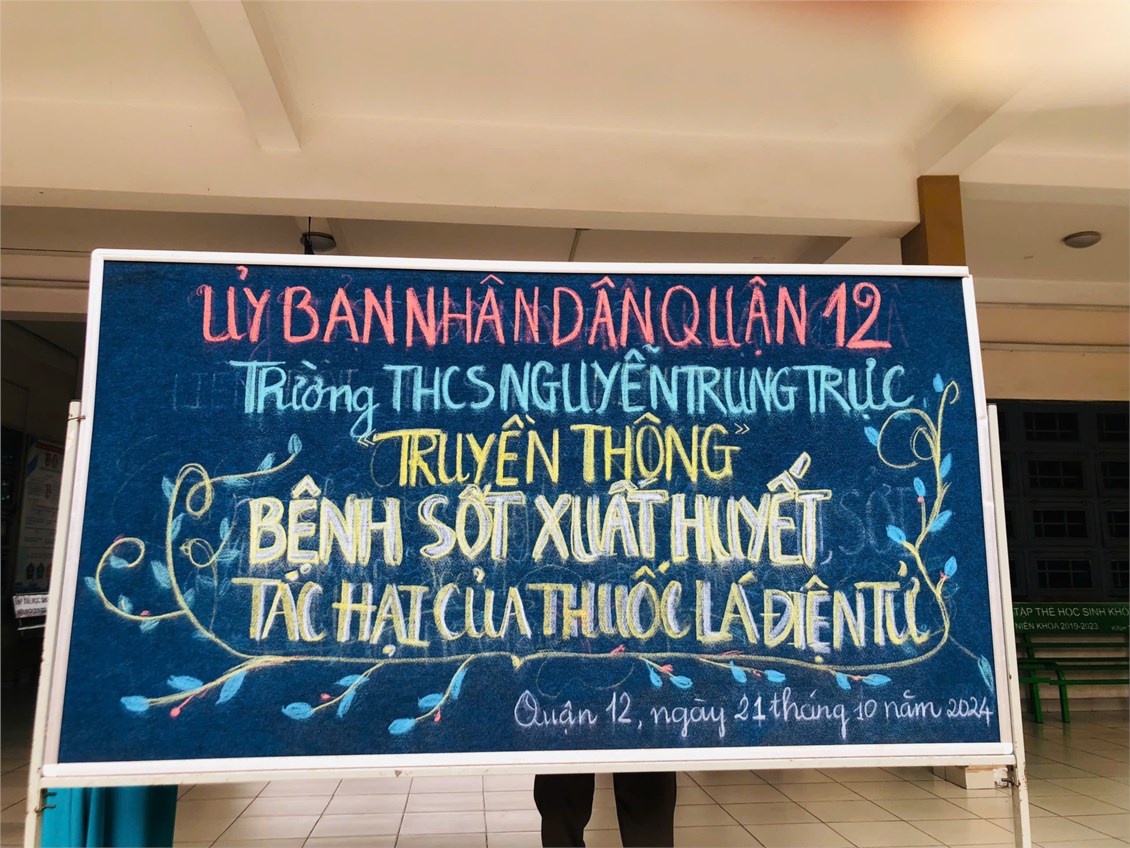 ỦY BAN NHÂN DÂN QUẬN 12
Trường THCS NGUYỄN TRUNG TRỰC
"TRUYỀN THÔNG"
BỆNH SỐT XUẤT HUYẾT,
TÁC HẠI CỦA THUỐC LÁ ĐIỆN TỬ
Quận 12, ngày 21 tháng 10 năm 2024
TẬP THỂ HỌC SINH KHỐ
NIÊN KHÓA 2019-2023